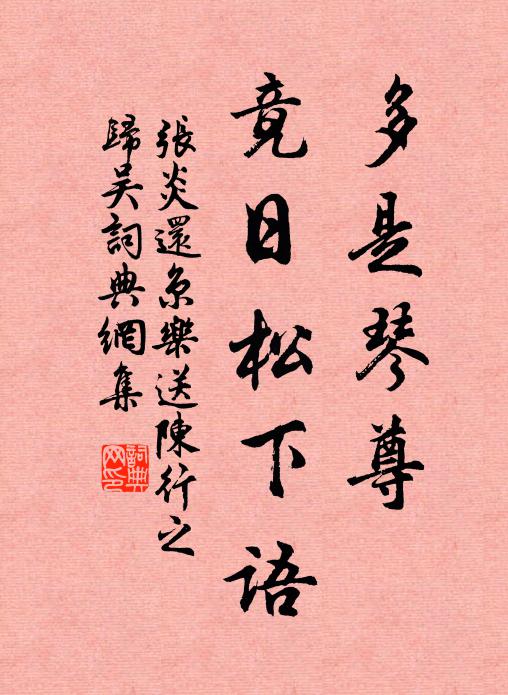 多是琴尊
竟日松下語
張炎還京樂送陳行之
歸吴詞典網集
詞典网印